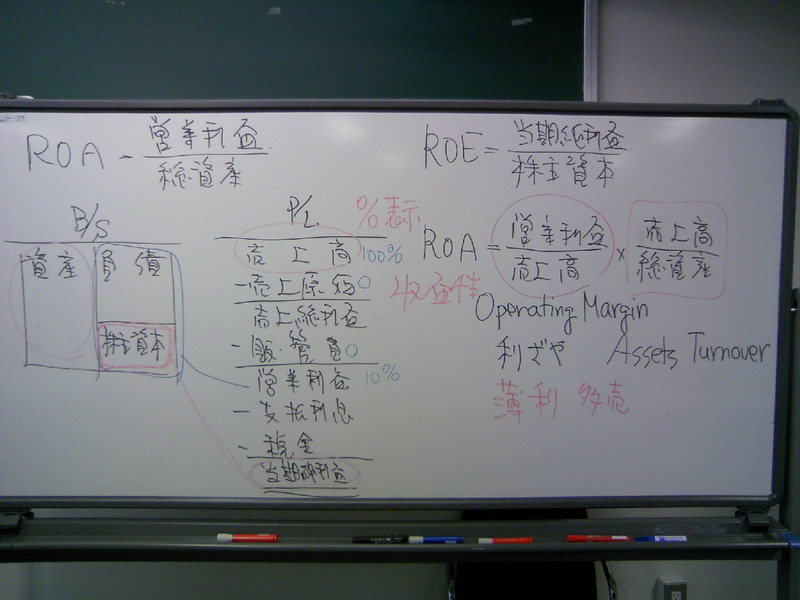 ROA = 営業利益 / 総資産
ROE = 当期純利益 / 株主資本
B/S
資産 負債
株主資本
P/L %表示
売上高 100%
-売上原価 0
売上総利益
-販・管費 0
営業利益 10%
-支払利息
-税金
当期純利益
収益性
ROA = 営業利益 / 売上高 × 売上高 / 総資産
Operating Margin
利ざや Assets Turnover
薄利 多売